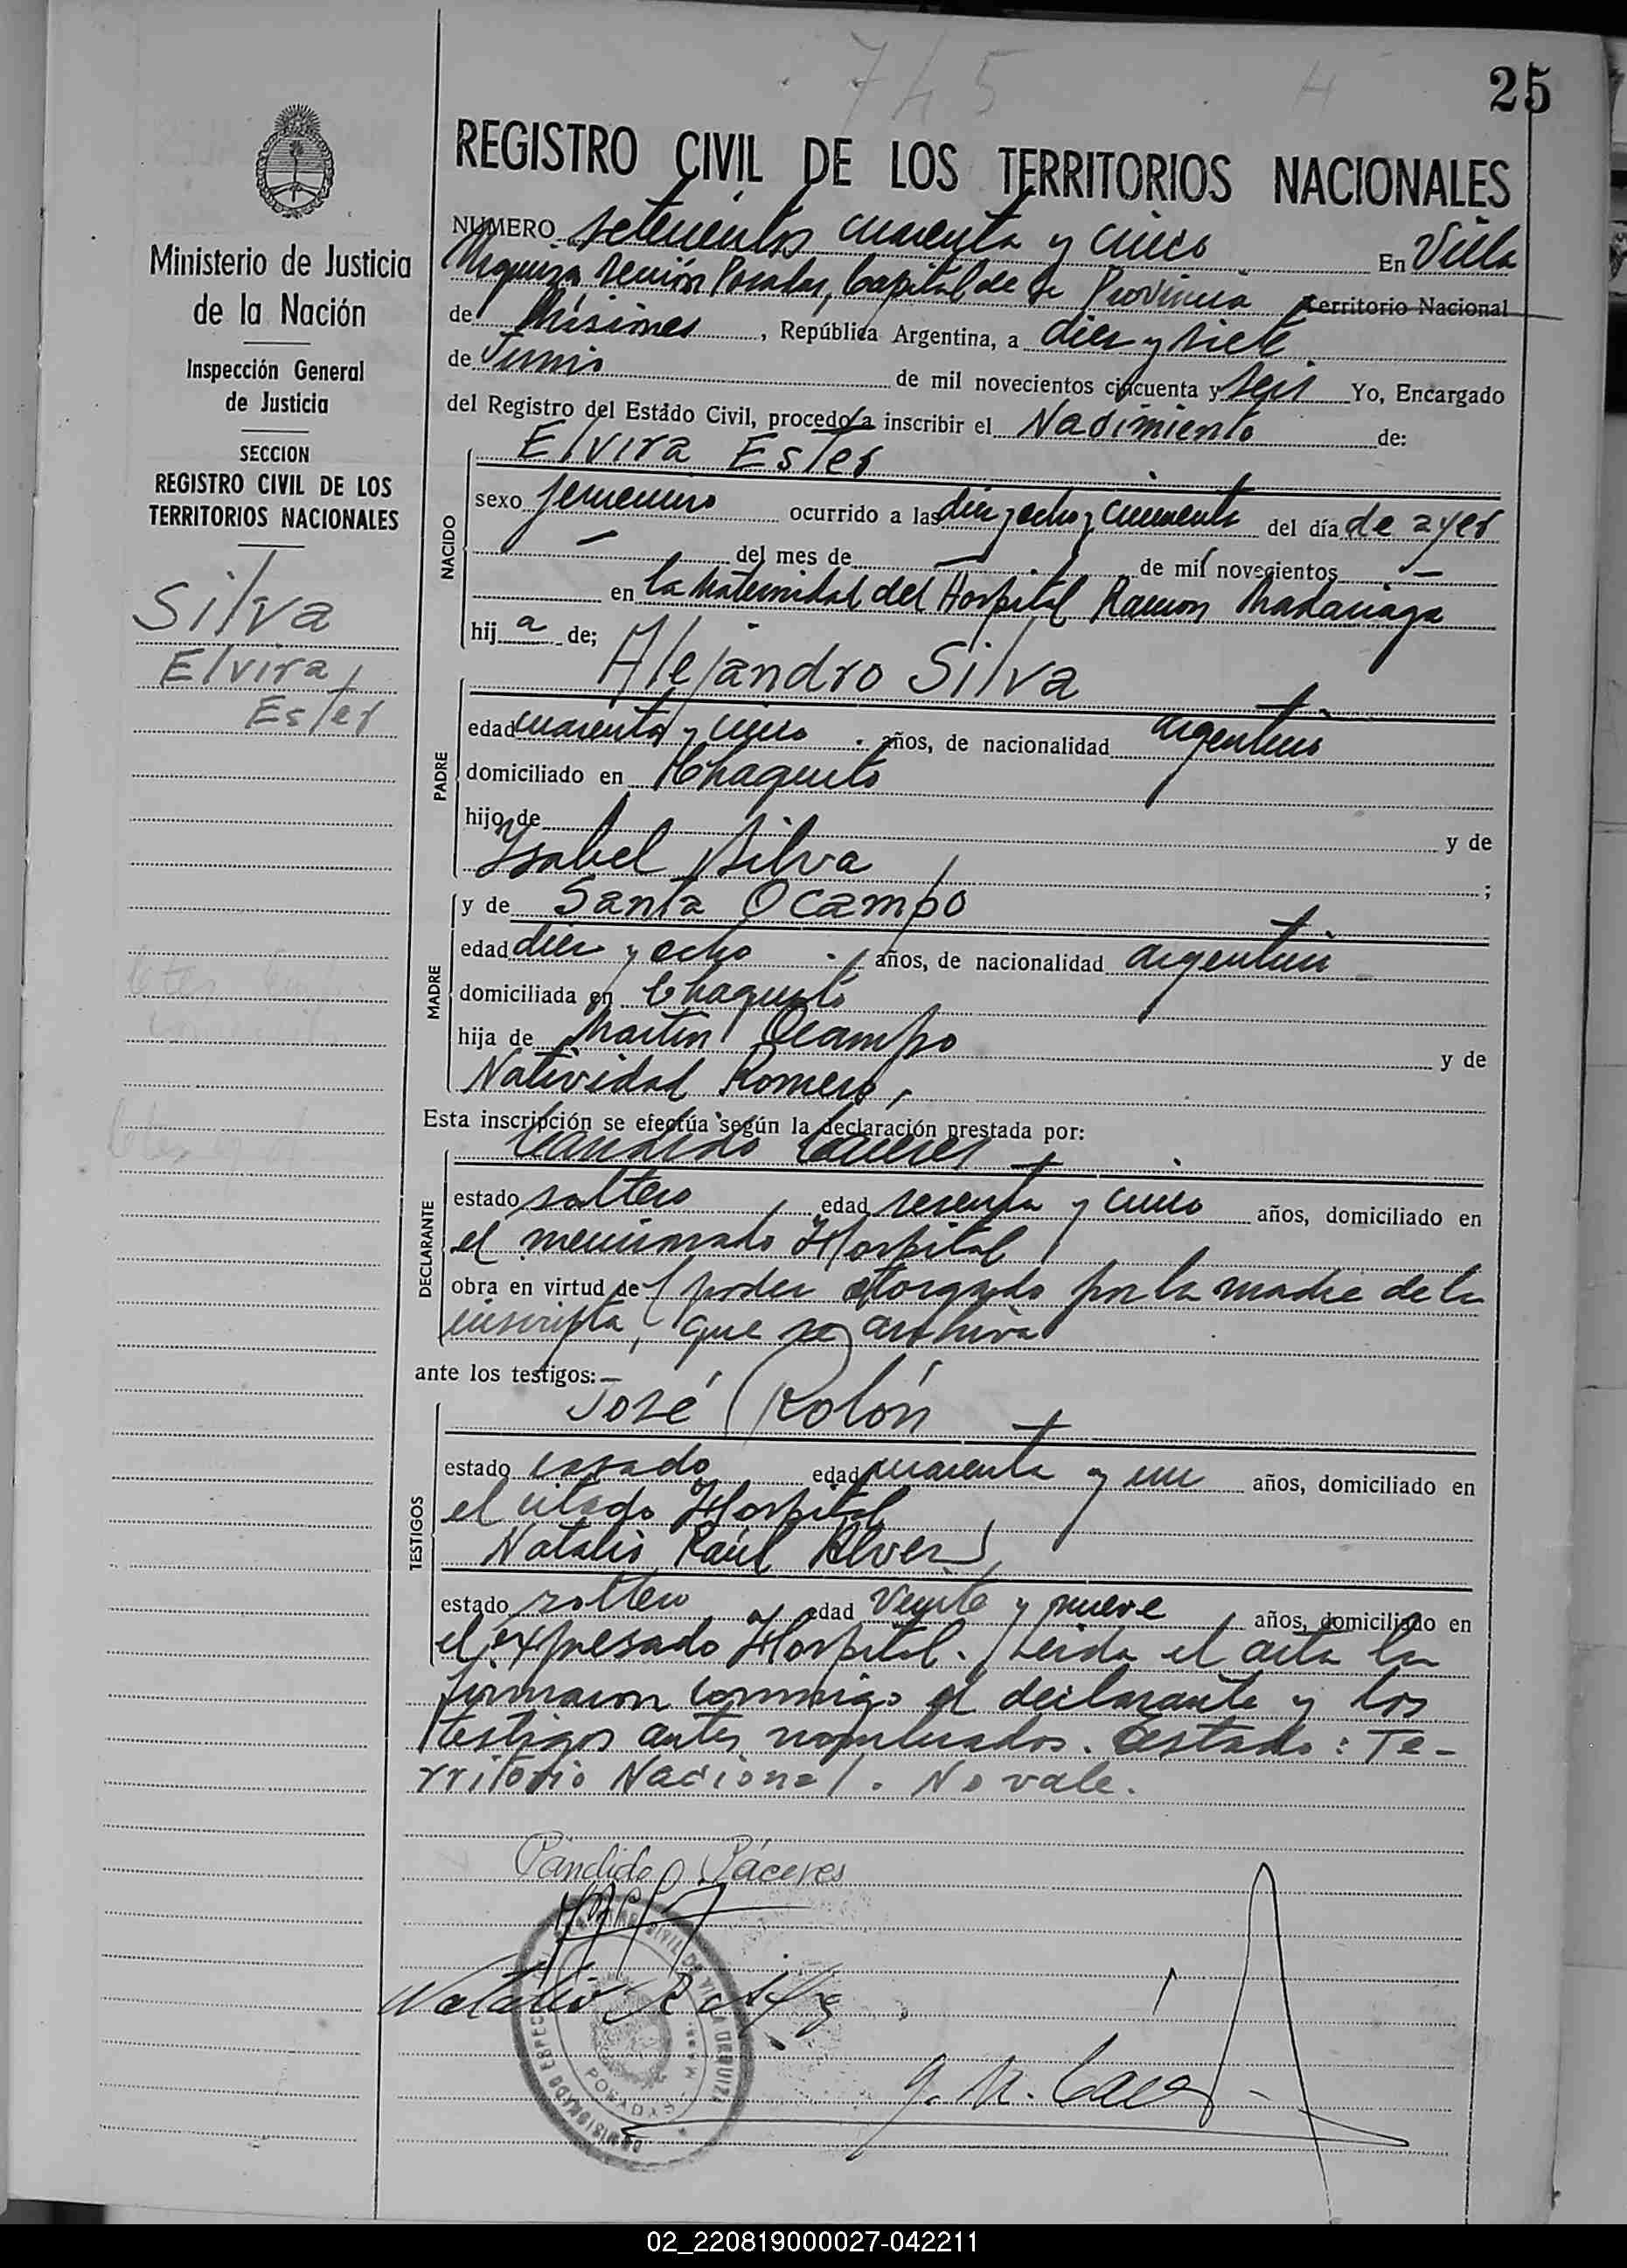 745
25
REGISTRO CIVIL DE LOS TERRITORIOS NACIONALES
NUMERO setecientos cuarenta y cinco En Villa
Urquiza sección Posadas, Capital de la Provincia Territorio Nacional
de Misiones, República Argentina, a diez y siete
de Junio de mil novecientos cincuenta y seis Yo, Encargado
del Registro del Estado Civil, procedo a inscribir el Nacimiento de:
Ministerio de Justicia
de la Nación
Inspección General
de Justicia
SECCION
REGISTRO CIVIL DE LOS
TERRITORIOS NACIONALES
Silva
Elvira
Ester
NACIDO
Elvira Ester
sexo femenino ocurrido a las diez y ocho y cincuenta del día de ayer
— del mes de — de mil novecientos —
en la Maternidad del Hospital Ramon Madariaga
hij a de;
PADRE
Alejandro Silva
edad cuarenta y cinco años, de nacionalidad argentino
domiciliado en Chaquito
hijo de y de
Ysabel Silva ;
MADRE
y de Santa Ocampo
edad diez y ocho años, de nacionalidad argentina
domiciliada en Chaquito
hija de Martin Ocampo y de
Natividad Romero,
Esta inscripción se efectúa según la declaración prestada por:
DECLARANTE
Candido Caceres
estado soltero edad sesenta y cinco años, domiciliado en
el mencionado Hospital
obra en virtud de poder otorgado por la madre de la
inscripta, que se archiva
ante los testigos:
TESTIGOS
José Rolón
estado casado edad cuarenta y un años, domiciliado en
el citado Hospital
Natalio Raúl Alvez
estado soltero edad veinte y nueve años, domiciliado en
el expresado Hospital. Leida el acta la
firmaron conmigo el declarante y los
testigos antes nombrados. Testado: Te-
rritorio Nacional. No vale.
Cándido Cáceres
Natalio R
POSADAS
02_220819000027-042211